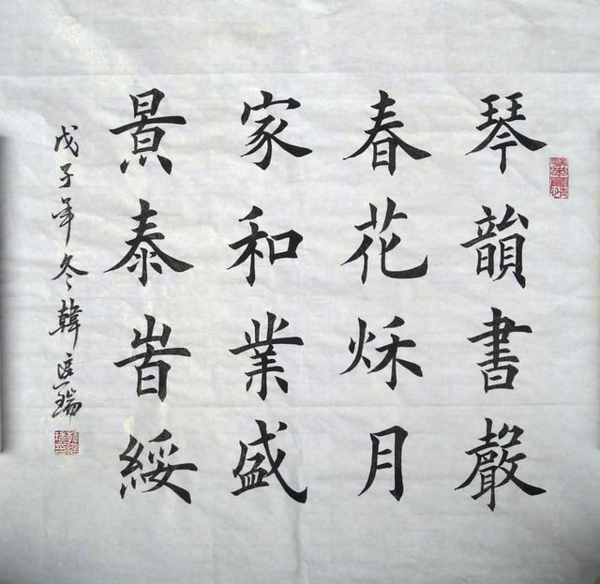 琴韻書聲
春花秋月
家和業盛
景泰旹綏
戊子年冬韓瑞